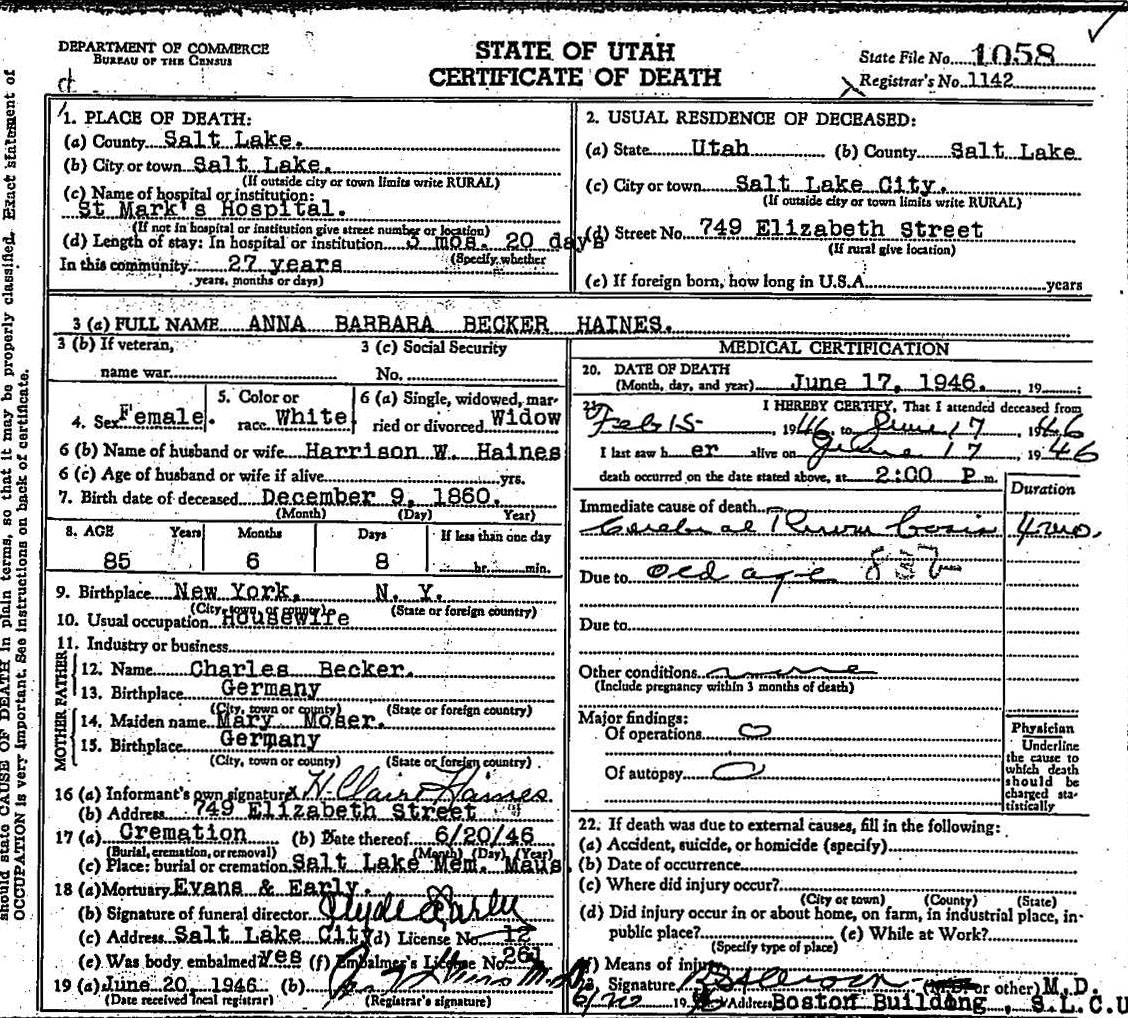 DEPARTMENT OF COMMERCE
BUREAU OF THE CENSUS
STATE OF UTAH
CERTIFICATE OF DEATH
State File No. 1058
Registrar's No. 1142
1. PLACE OF DEATH:
(a) County Salt Lake.
(b) City or town Salt Lake.
(If outside city or town limits write RURAL)
(c) Name of hospital or institution:
St Mark's Hospital.
(If not in hospital or institution give street number or location)
(d) Length of stay: In hospital or institution 3 mos. 20 days
(Specify whether
In this community 27 years
years, months or days)
2. USUAL RESIDENCE OF DECEASED:
(a) State Utah (b) County Salt Lake
(c) City or town Salt Lake City.
(If outside city or town limits write RURAL)
(d) Street No. 749 Elizabeth Street
(If rural give location)
(e) If foreign born, how long in U.S.A. years
3 (a) FULL NAME ANNA BARBARA BECKER HAINES.
3 (b) If veteran,
name war
3 (c) Social Security
No.
4. Sex Female.
5. Color or
race White
6 (a) Single, widowed, mar-
ried or divorced Widow
6 (b) Name of husband or wife Harrison W. Haines
6 (c) Age of husband or wife if alive yrs.
7. Birth date of deceased December 9, 1860.
(Month) (Day) Year)
8. AGE Years Months Days If less than one day
85 6 8 hr. min.
9. Birthplace New York, N. Y.
(City, town, or county) (State or foreign country)
10. Usual occupation Housewife
11. Industry or business
FATHER
12. Name Charles Becker.
13. Birthplace Germany
(City, town or county) (State or foreign country)
MOTHER
14. Maiden name Mary Moser.
15. Birthplace Germany
(City, town or county) (State or foreign country)
16 (a) Informant's own signature x H. Claire Haines
(b) Address 749 Elizabeth Street
17 (a) Cremation (b) Date thereof 6/20/46
(Burial, cremation, or removal) (Month) (Day) (Year)
(c) Place: burial or cremation Salt Lake Mem. Maus.
18 (a) Mortuary Evans & Early.
(b) Signature of funeral director Clyde Early
(c) Address Salt Lake City (d) License No. 12
(e) Was body embalmed? yes (f) Embalmer's License No. 261
19 (a) June 20, 1946 (b) M.D.
(Date received local registrar) (Registrar's signature)
MEDICAL CERTIFICATION
20. DATE OF DEATH
(Month, day, and year) June 17, 1946. , 19 :
21. I HEREBY CERTIFY, That I attended deceased from
Feb 15 , 1946, to June 17 , 1946
I last saw h er alive on June 17 , 1946
death occurred on the date stated above, at 2:00 P m.
Duration
Immediate cause of death
Cerebral Thrombosis 4 mo.
Due to old age
Due to
Other conditions none
(Include pregnancy within 3 months of death)
Major findings:
Of operations O
Of autopsy O
Physician
Underline
the cause to
which death
should be
charged sta-
tistically
22. If death was due to external causes, fill in the following:
(a) Accident, suicide, or homicide (specify)
(b) Date of occurrence
(c) Where did injury occur?
(City or town) (County) (State)
(d) Did injury occur in or about home, on farm, in industrial place, in-
public place? (e) While at Work?
(Specify type of place)
(f) Means of injury
23. Signature (M.D. or other) M.D.
6/20 1946 Address Boston Building , S.L.C.U
should state CAUSE OF DEATH in plain terms, so that it may be properly classified. Exact statement of
OCCUPATION is very important. See instructions on back of certificate.